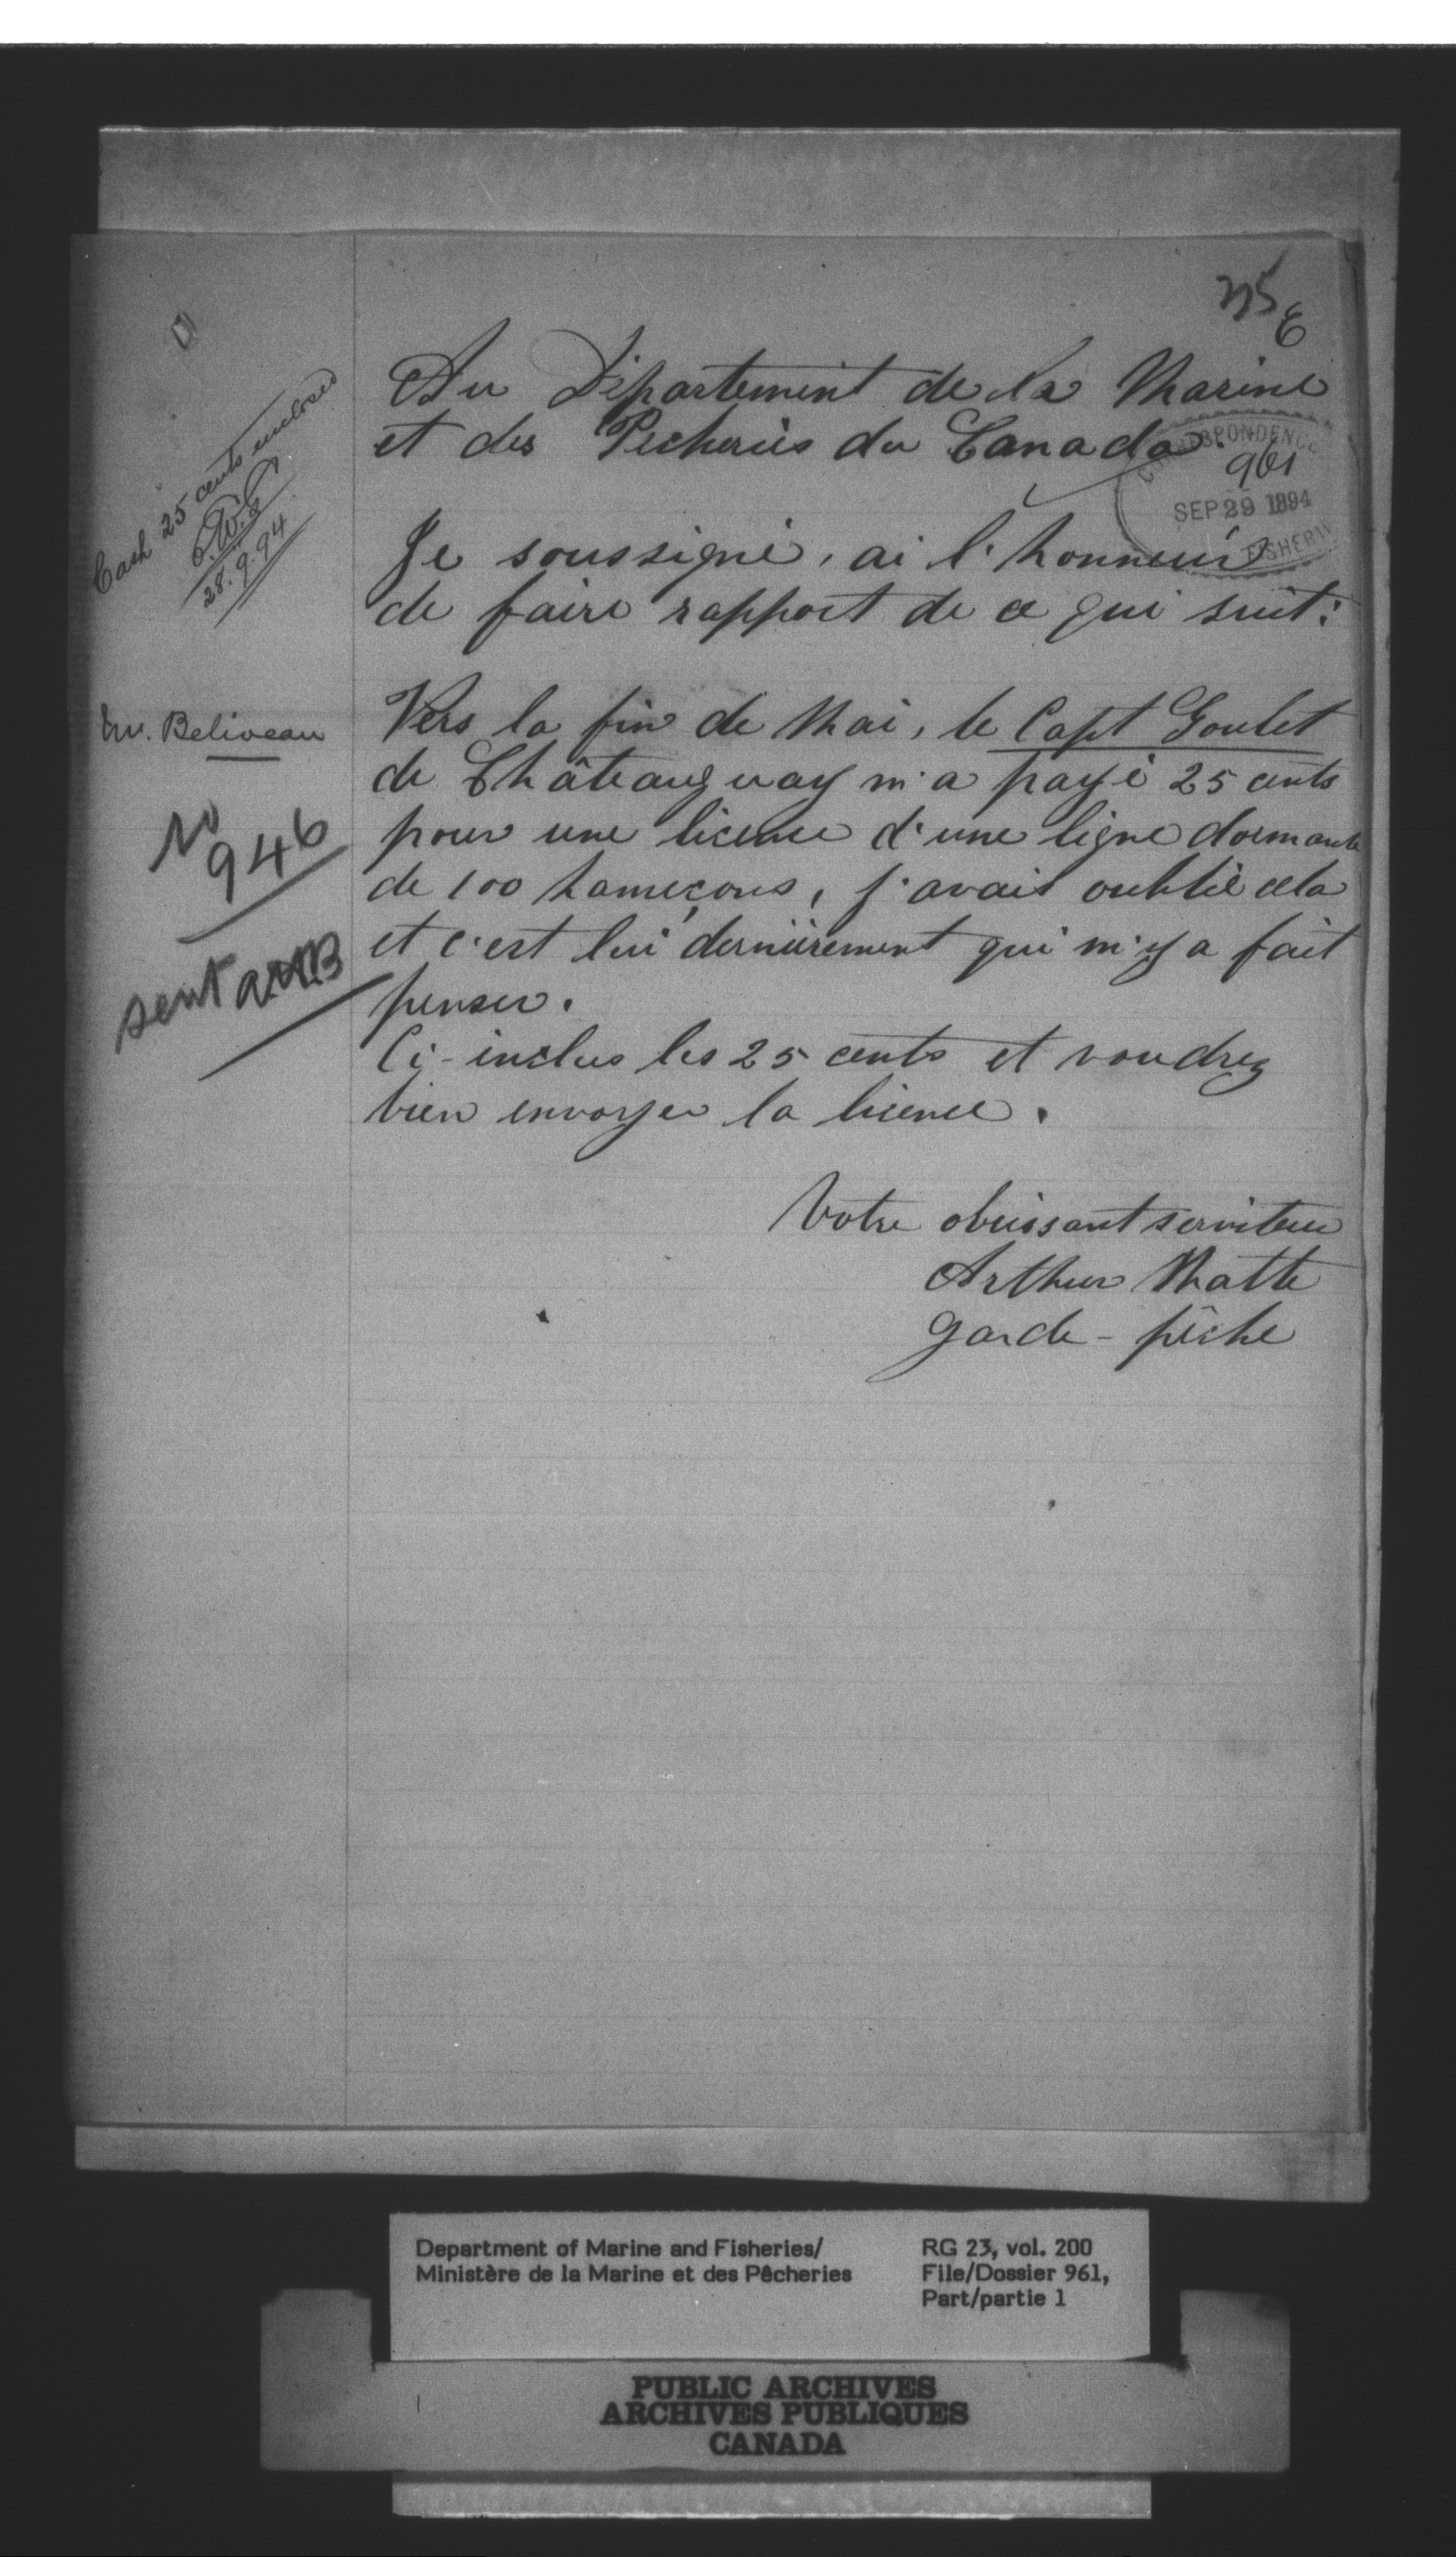 Au Département de la Marine
et des Pecheries du Canada.
CORRESPONDENCE
961
SEP 29 1894
FISHERIES
Je soussigné, ai l'honneur
de faire rapport de ce qui suit:
Cash 25 cents enclosed
28.9.94
Vers la fin de Mai, le Capt Goulet
de Châteauguay m'a payé 25 cents
pour une licence d'une ligne dormante
de 100 hameçons, j'avais oublié cela
et c'est lui dernièrement qui m'y a fait
penser.
Ci-inclus les 25 cents et voudrez
bien envoyer la licence.
Beliveau
No
946
sent
Votre obéissant serviteur
Arthur Matte
garde-pêche
Department of Marine and Fisheries/
Ministère de la Marine et des Pêcheries
RG 23, vol. 200
File/Dossier 961,
Part/partie 1
PUBLIC ARCHIVES
ARCHIVES PUBLIQUES
CANADA